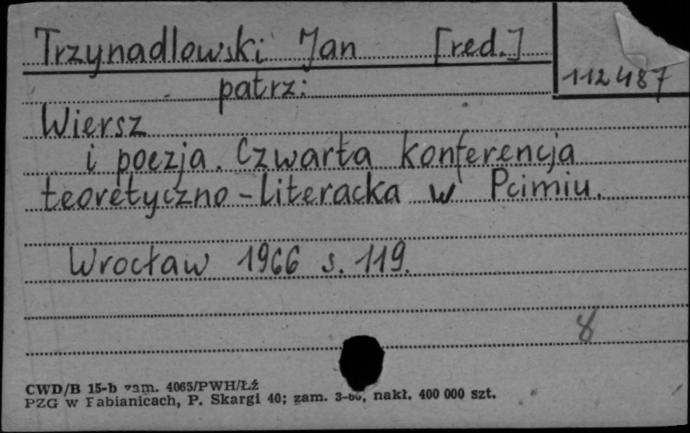 Trzynadlowski Jan [red.]
112487
patrz:
Wiersz
i poezja. Czwarta konferencja
teoretyczno-literacka w Pcimiu.
Wrocław 1966 s. 119.
8
CWD/B 15-b zam. 4065/PWH/Łż
PZG w Pabianicach, P. Skargi 40; zam. nakł. 400 000 szt.